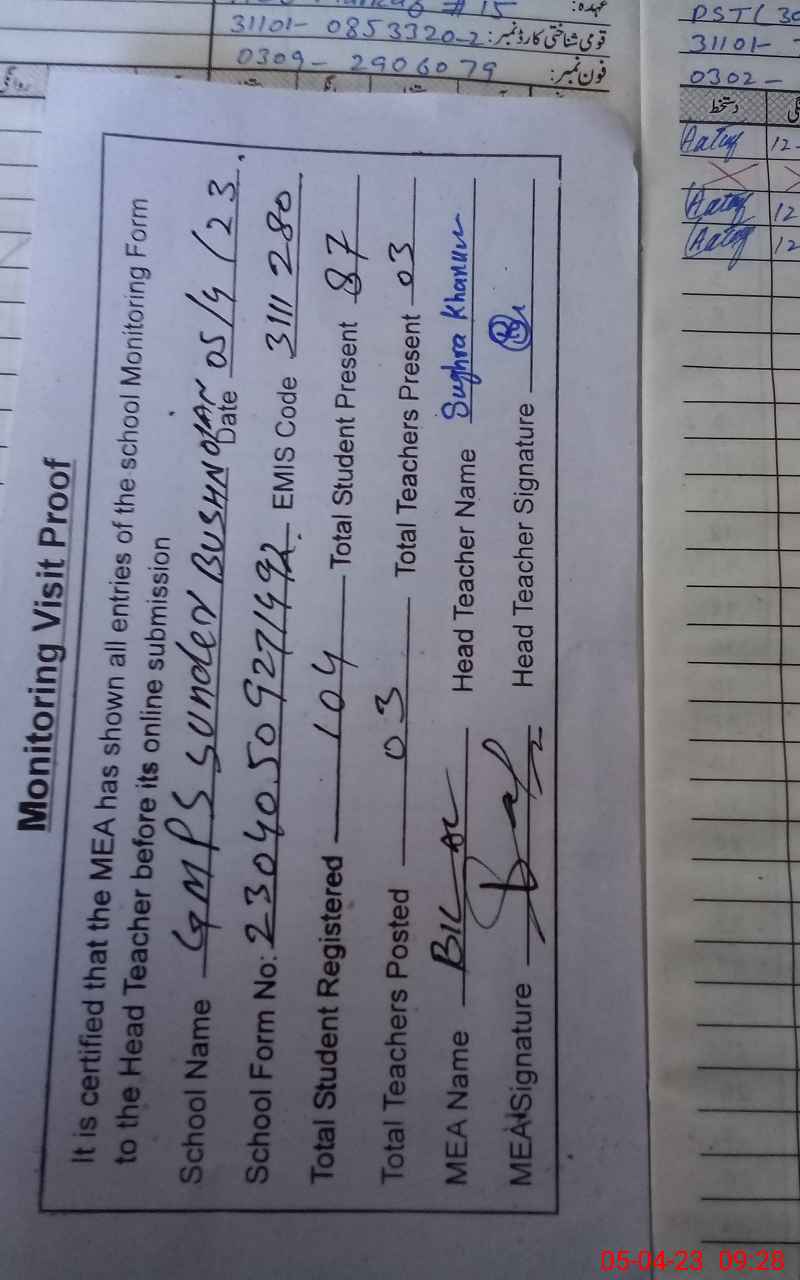 # 15
عہدہ:
31101- 0853320-2 قومی شناختی کارڈ نمبر:
0309- 2906079 فون نمبر:
PST(
31101-
0302-
دستخط
12-
12
12
Monitoring Visit Proof
It is certified that the MEA has shown all entries of the school Monitoring Form
to the Head Teacher before its online submission
School Name GMPS Sunder BUSHNOIAN Date 05/4/23.
School Form No: 230405092714 EMIS Code 31111280
Total Student Registered 104 Total Student Present 87
Total Teachers Posted 03 Total Teachers Present 03
MEA Name Head Teacher Name Sughra Khanum
MEA Signature Head Teacher Signature
05-04-23 09:28